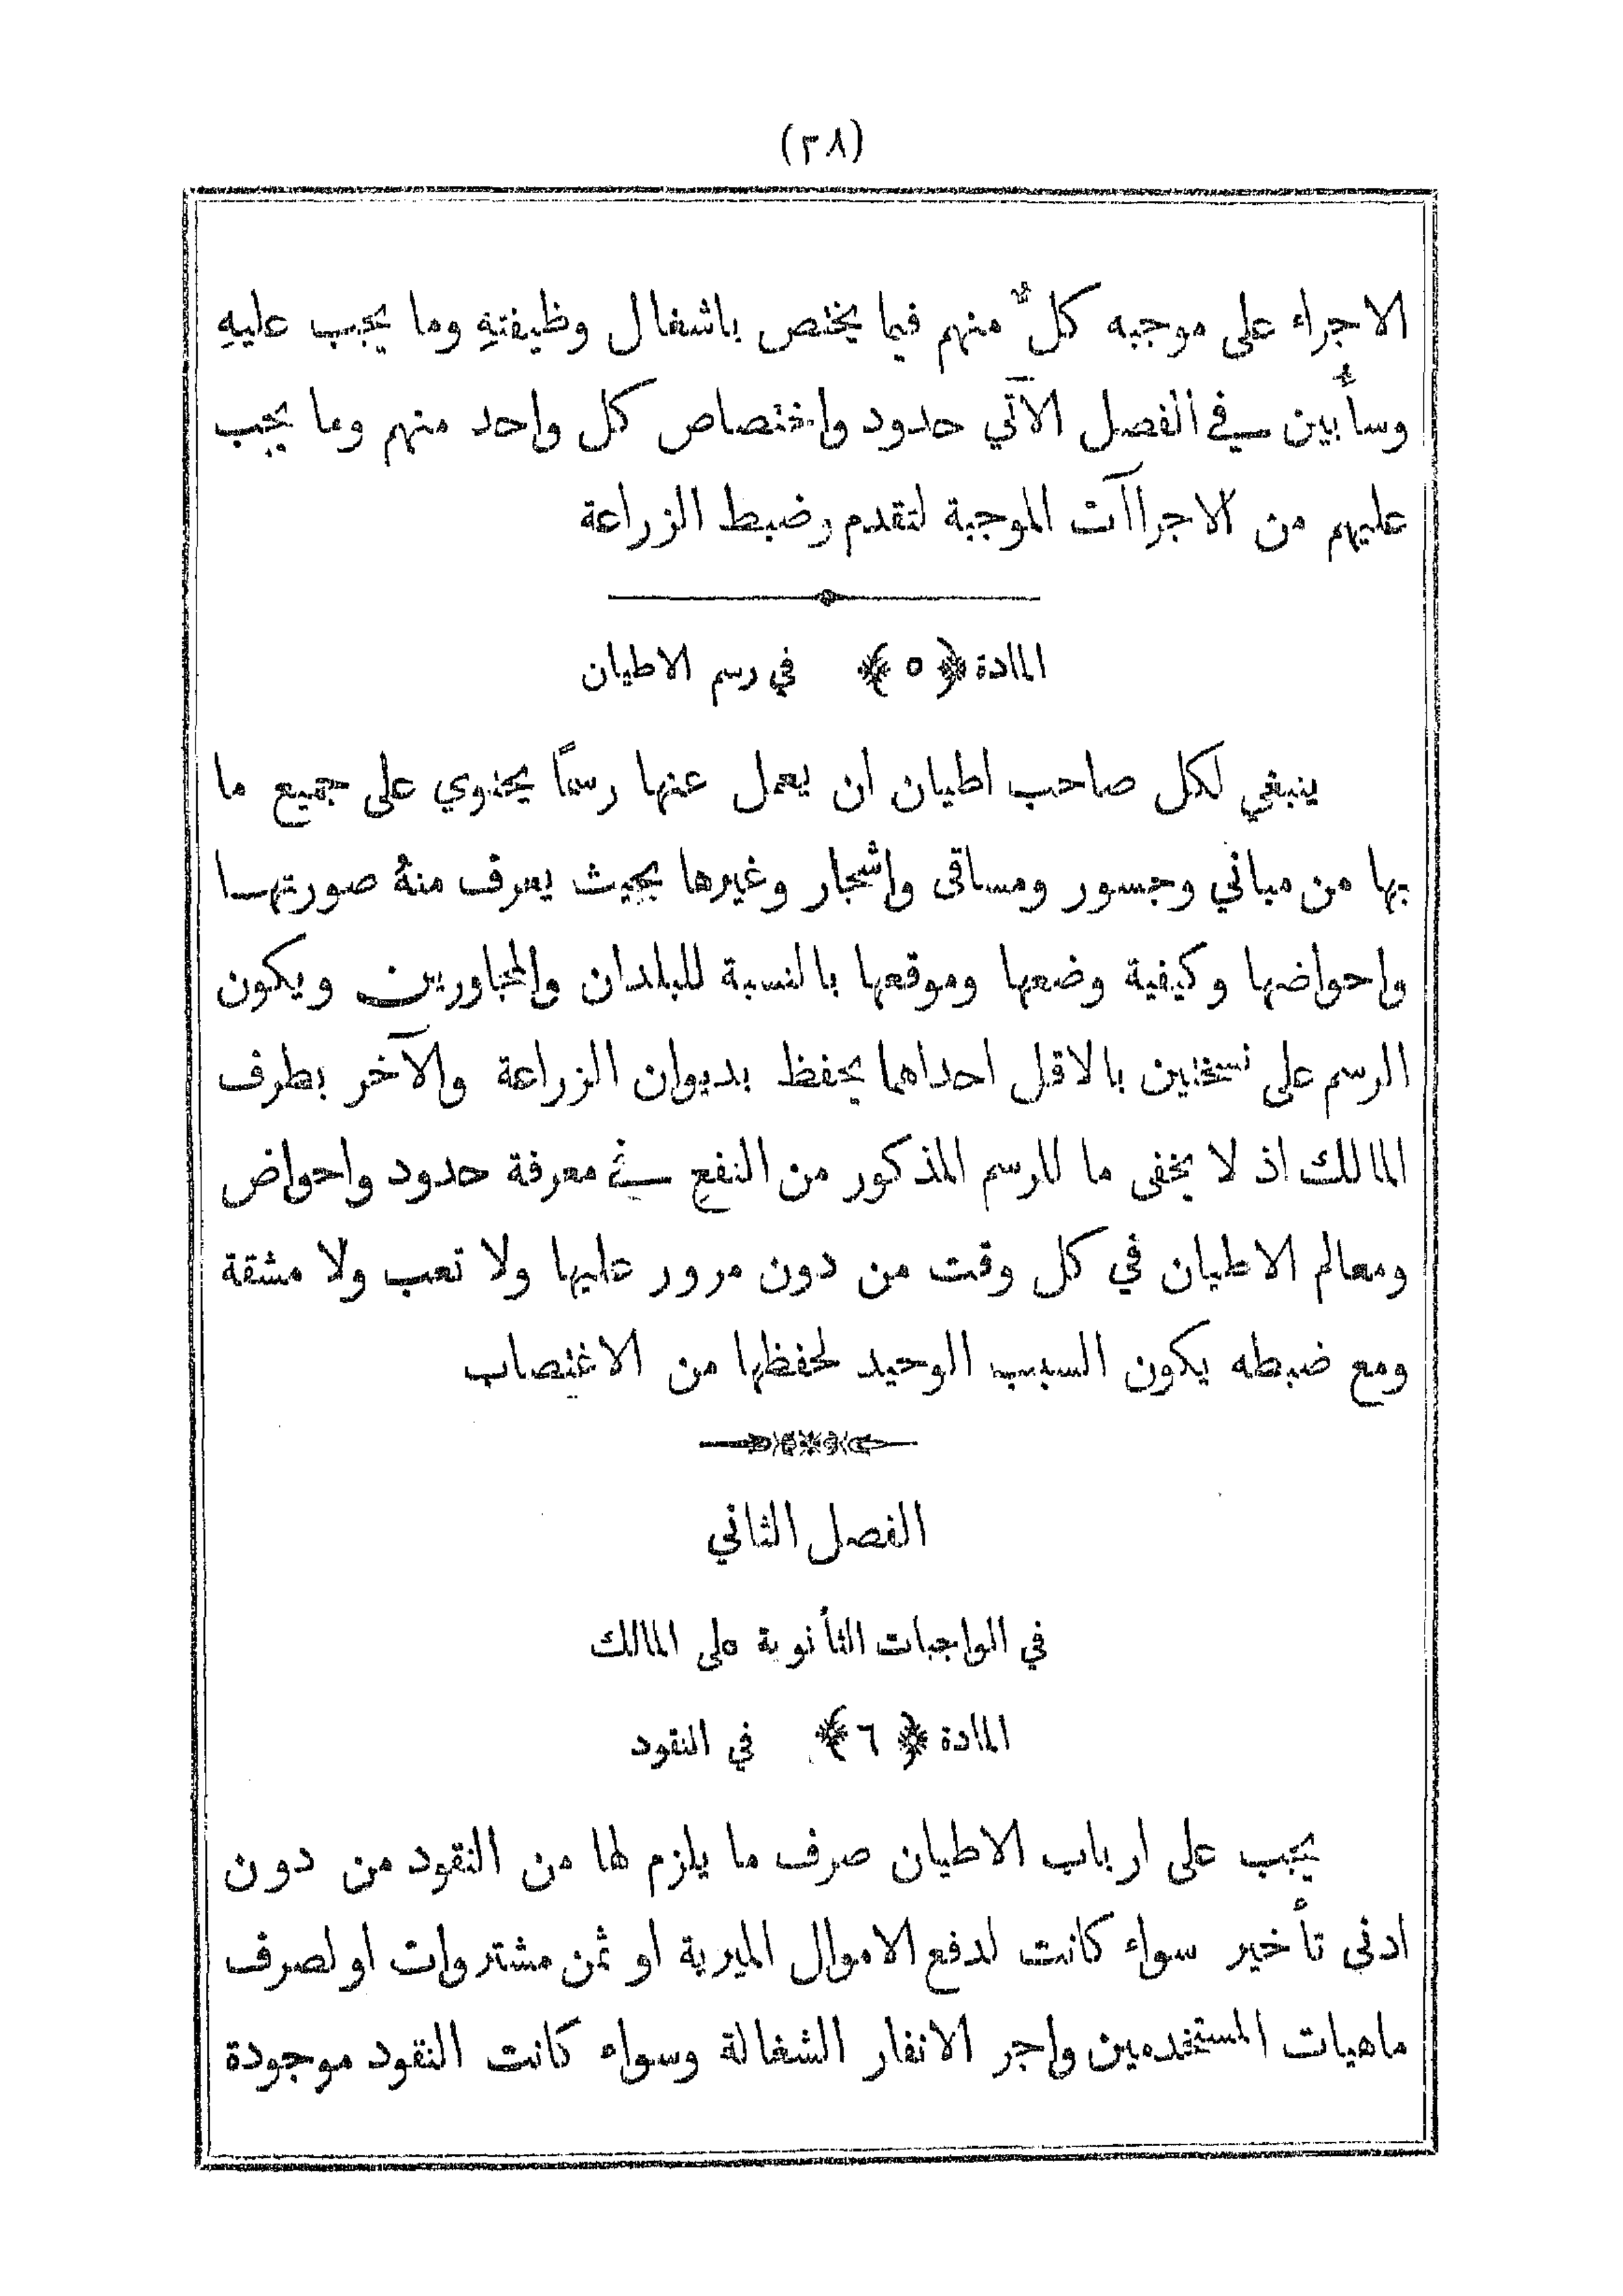 (٣٨)
الاجراء على موجبه كلٌ منهم فيما يختص باشغال وظيفتهِ وما يجب عليهِ
وسأُبين في الفصل الآتي حدود واختصاص كل واحد منهم وما يجب
عليهم من الاجراآت الموجبة لتقدم وضبط الزراعة
المادة ﴿٥﴾ في رسم الاطيان
ينبغي لكل صاحب اطيان ان يعمل عنها رسمًا يحتوي على جميع ما
بها من مباني وجسور ومساقى واشجار وغيرها بحيث يعرف منهُ صورتها
واحواضها وكيفية وضعها وموقعها بالنسبة للبلدان والمجاورين ويكون
الرسم على نسختين بالاقل احداهما يحفظ بديوان الزراعة والآخر بطرف
المالك اذ لا يخفى ما للرسم المذكور من النفع في معرفة حدود واحواض
ومعالم الاطيان في كل وقت من دون مرور عليها ولا تعب ولا مشقة
ومع ضبطه يكون السبب الوحيد لحفظها من الاغتصاب
الفصل الثاني
في الواجبات الثأنوية على المالك
المادة ﴿٦﴾ في النقود
يجب على ارباب الاطيان صرف ما يلزم لها من النقود من دون
ادنى تأخير سواء كانت لدفع الاموال الميرية او ثمن مشتروات او لصرف
ماهيات المستخدمين واجر الانفار الشغالة وسواء كانت النقود موجودة